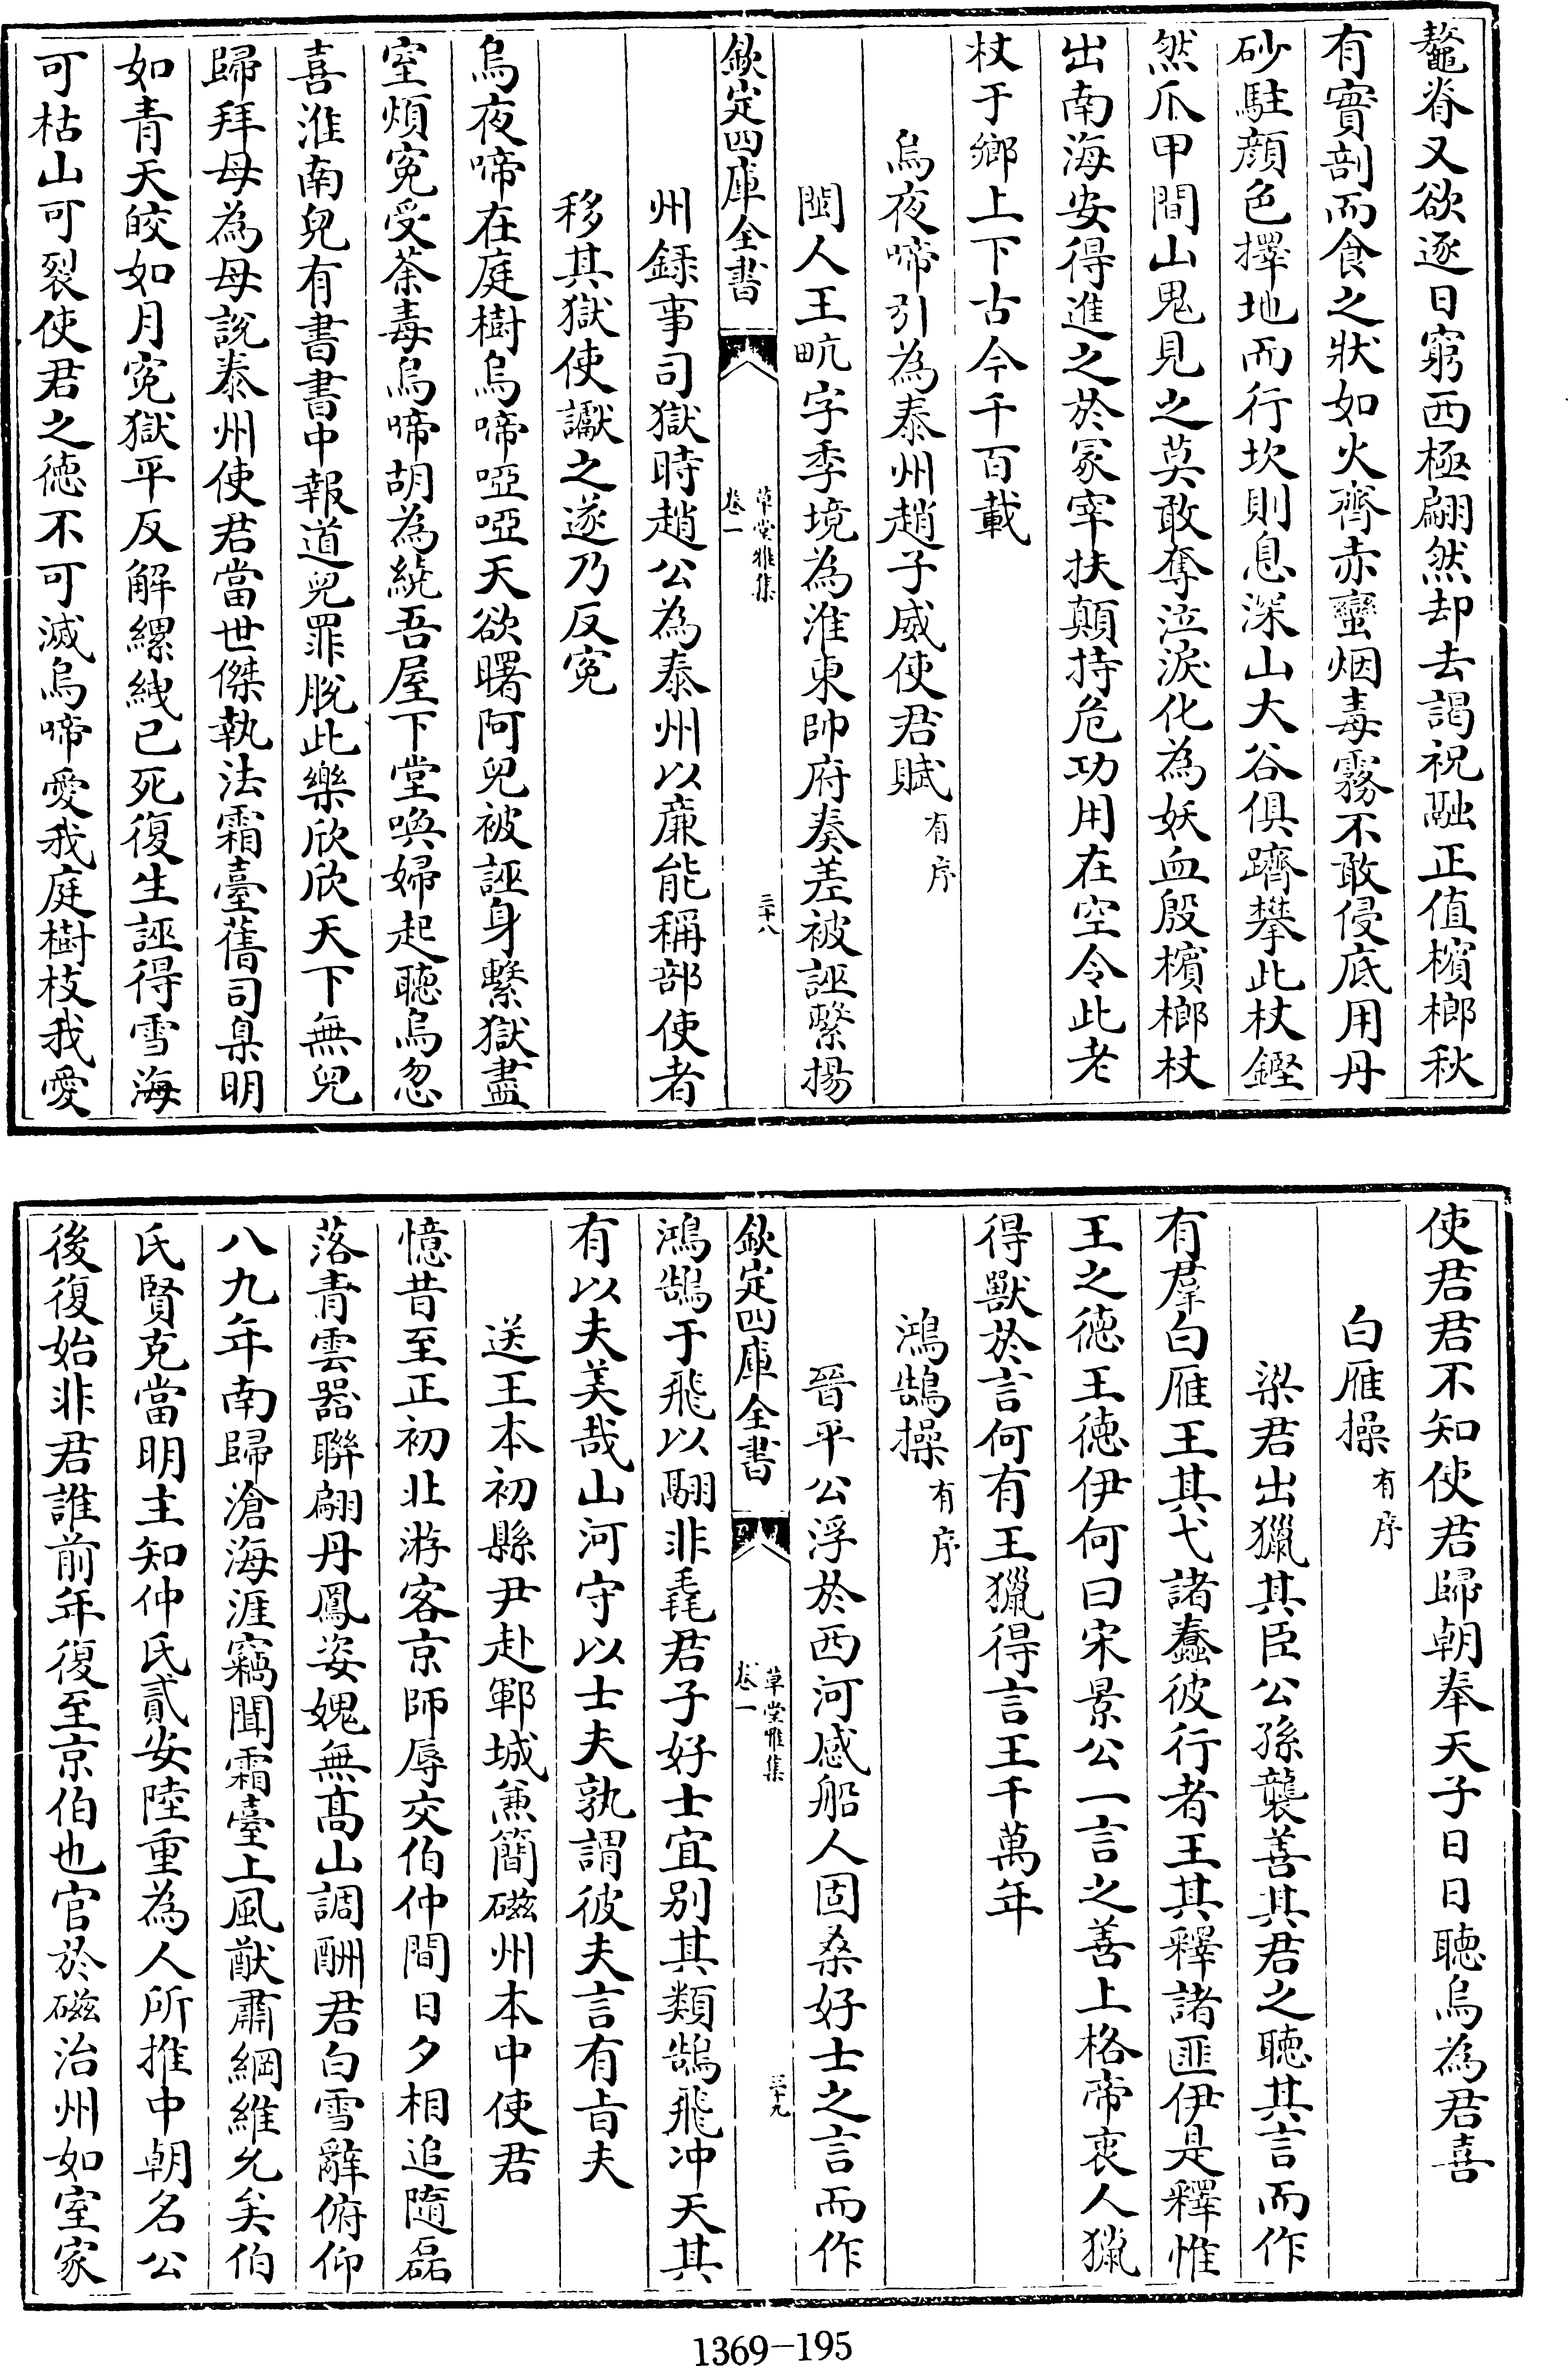 鼇脊又欲逐日窮西極翩然却去謁祝融正值檳榔秋
有實剖而食之狀如火齊赤蠻烟毒霧不敢侵底用丹
砂駐顔色擇地而行坎則息深山大谷俱躋攀此杖鏗
然爪甲間山鬼見之莫敢奪泣淚化為妖血殷檳榔杖
出南海安得進之於冢宰扶顛持危功用在空令此老
杖于鄉上下古今千百載
烏夜啼引為泰州趙子威使君賦有序
閩人王畖字季境為淮東帥府奏差被誣繫揚
欽定四庫全書
草堂雅集
卷一
三十八
州録事司獄時趙公為泰州以廉能稱部使者
移其獄使讞之遂乃反寃
烏夜啼在庭樹烏啼啞啞天欲曙阿兒被誣身繫獄盡
室煩寃受荼毒烏啼胡為繞吾屋下堂喚婦起聽烏忽
喜淮南兒有書書中報道兒罪脫此樂欣欣天下無兒
歸拜母為母說泰州使君當世傑執法霜臺舊司臬明
如青天皎如月寃獄平反解縲絏已死復生誣得雪海
可枯山可裂使君之徳不可滅烏啼愛我庭樹枝我愛
使君君不知使君歸朝奉天子日日聽烏為君喜
白雁操有序
梁君出獵其臣公孫襲善其君之聽其言而作
有羣白雁王其弋諸蠢彼行者王其釋諸匪伊是釋惟
王之徳王徳伊何曰宋景公一言之善上格帝衷人獵
得獸於言何有王獵得言王千萬年
鴻鵠操有序
晉平公浮於西河感船人固桑好士之言而作
欽定四庫全書
草堂雅集
卷一
三十九
鴻鵠于飛以翮非毳君子好士宜别其類鵠飛冲天其
有以夫美哉山河守以士夫孰謂彼夫言有旨夫
送王本初縣尹赴鄆城兼簡磁州本中使君
憶昔至正初北游客京師辱交伯仲間日夕相追隨磊
落青雲器聯翩丹鳳姿媿無髙山調酬君白雪辭俯仰
八九年南歸滄海涯竊聞霜臺上風猷肅綱維允矣伯
氏賢克當明主知仲氏貳安陸重為人所推中朝名公
後復始非君誰前年復至京伯也官於磁治州如室家
1369-195